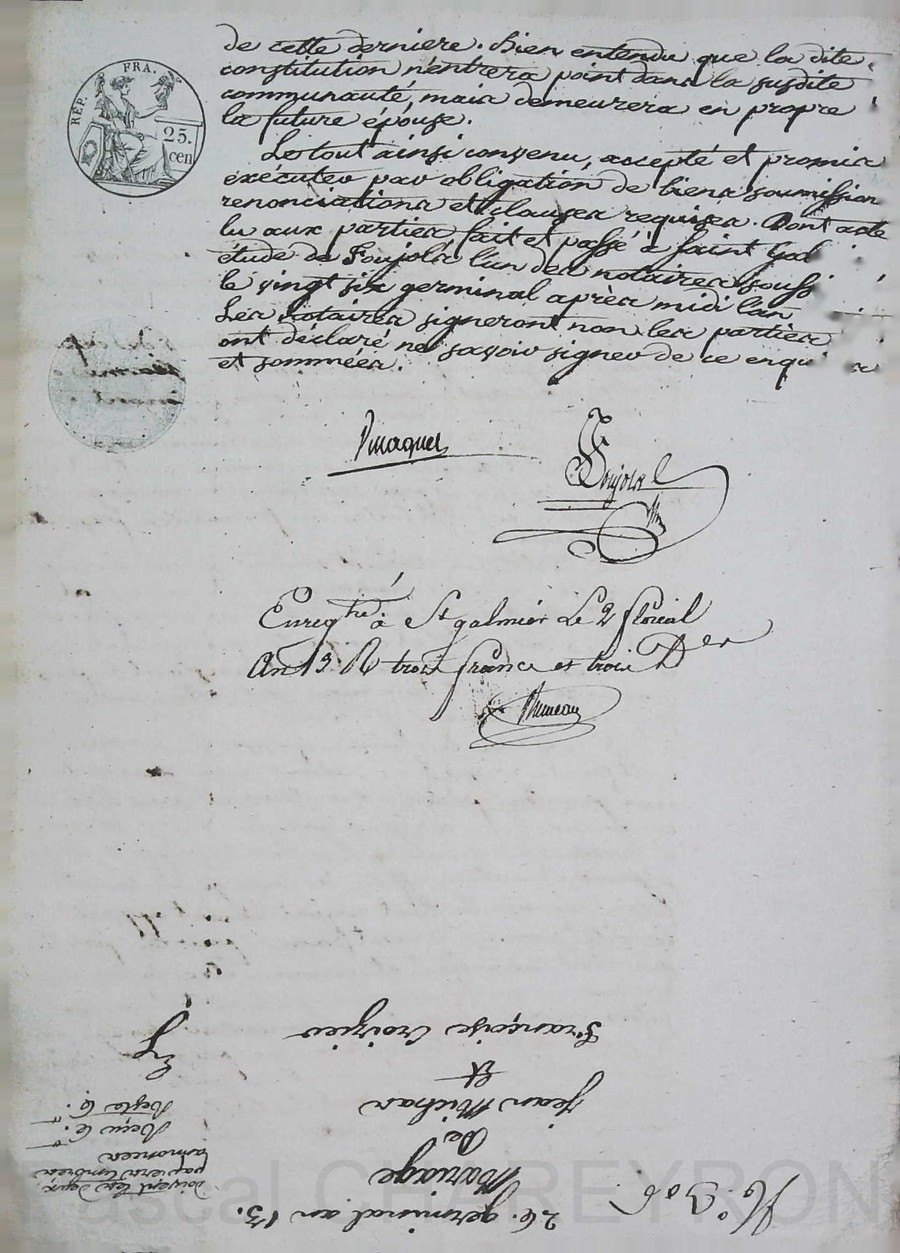 RÉP. FRA.
25.
cen
de cette derniere. Bien entendu que la dite
constitution n'entrera point dans la susdite
communauté, mais demeurera en propre
la future epouse.
Le tout ainsi convenu, accepté et promis
exécuter par obligation de biens soumission
renonciations et clauses requises. Dont acte
lu aux parties fait et passé à Saint Gal
étude de Foujols l'un des notaires souss
le vingt six germinal après midi l'an
Les notaires signeront non les parties
ont déclaré ne savoir signer de ce enqui s
et sommées.
Foujols
Enregtré à St galmier Le 2 floréal
An 13 R trois francs et trois Des
26. germinal an 13.
Mariage
de
Jean Michar
Et
Françoise Croizier
doivent les deux
papiers timbrés
Reçu 6.
Reste 6.
Pascal CHAREYRON